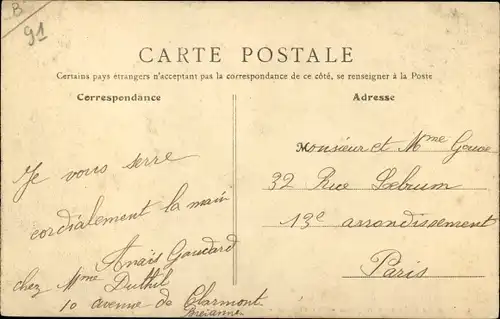 B
91
CARTE POSTALE
Certains pays étrangers n'acceptant pas la correspondance de ce côté, se renseigner à la Poste
Correspondance
Adresse
Je vous serre
cordialement la main
Anaïs Goudard
chez Mme Duthil
10 avenue de Clarmont
Monsieur et Mme
32 Rue Lebrun
13e arrondissement
Paris